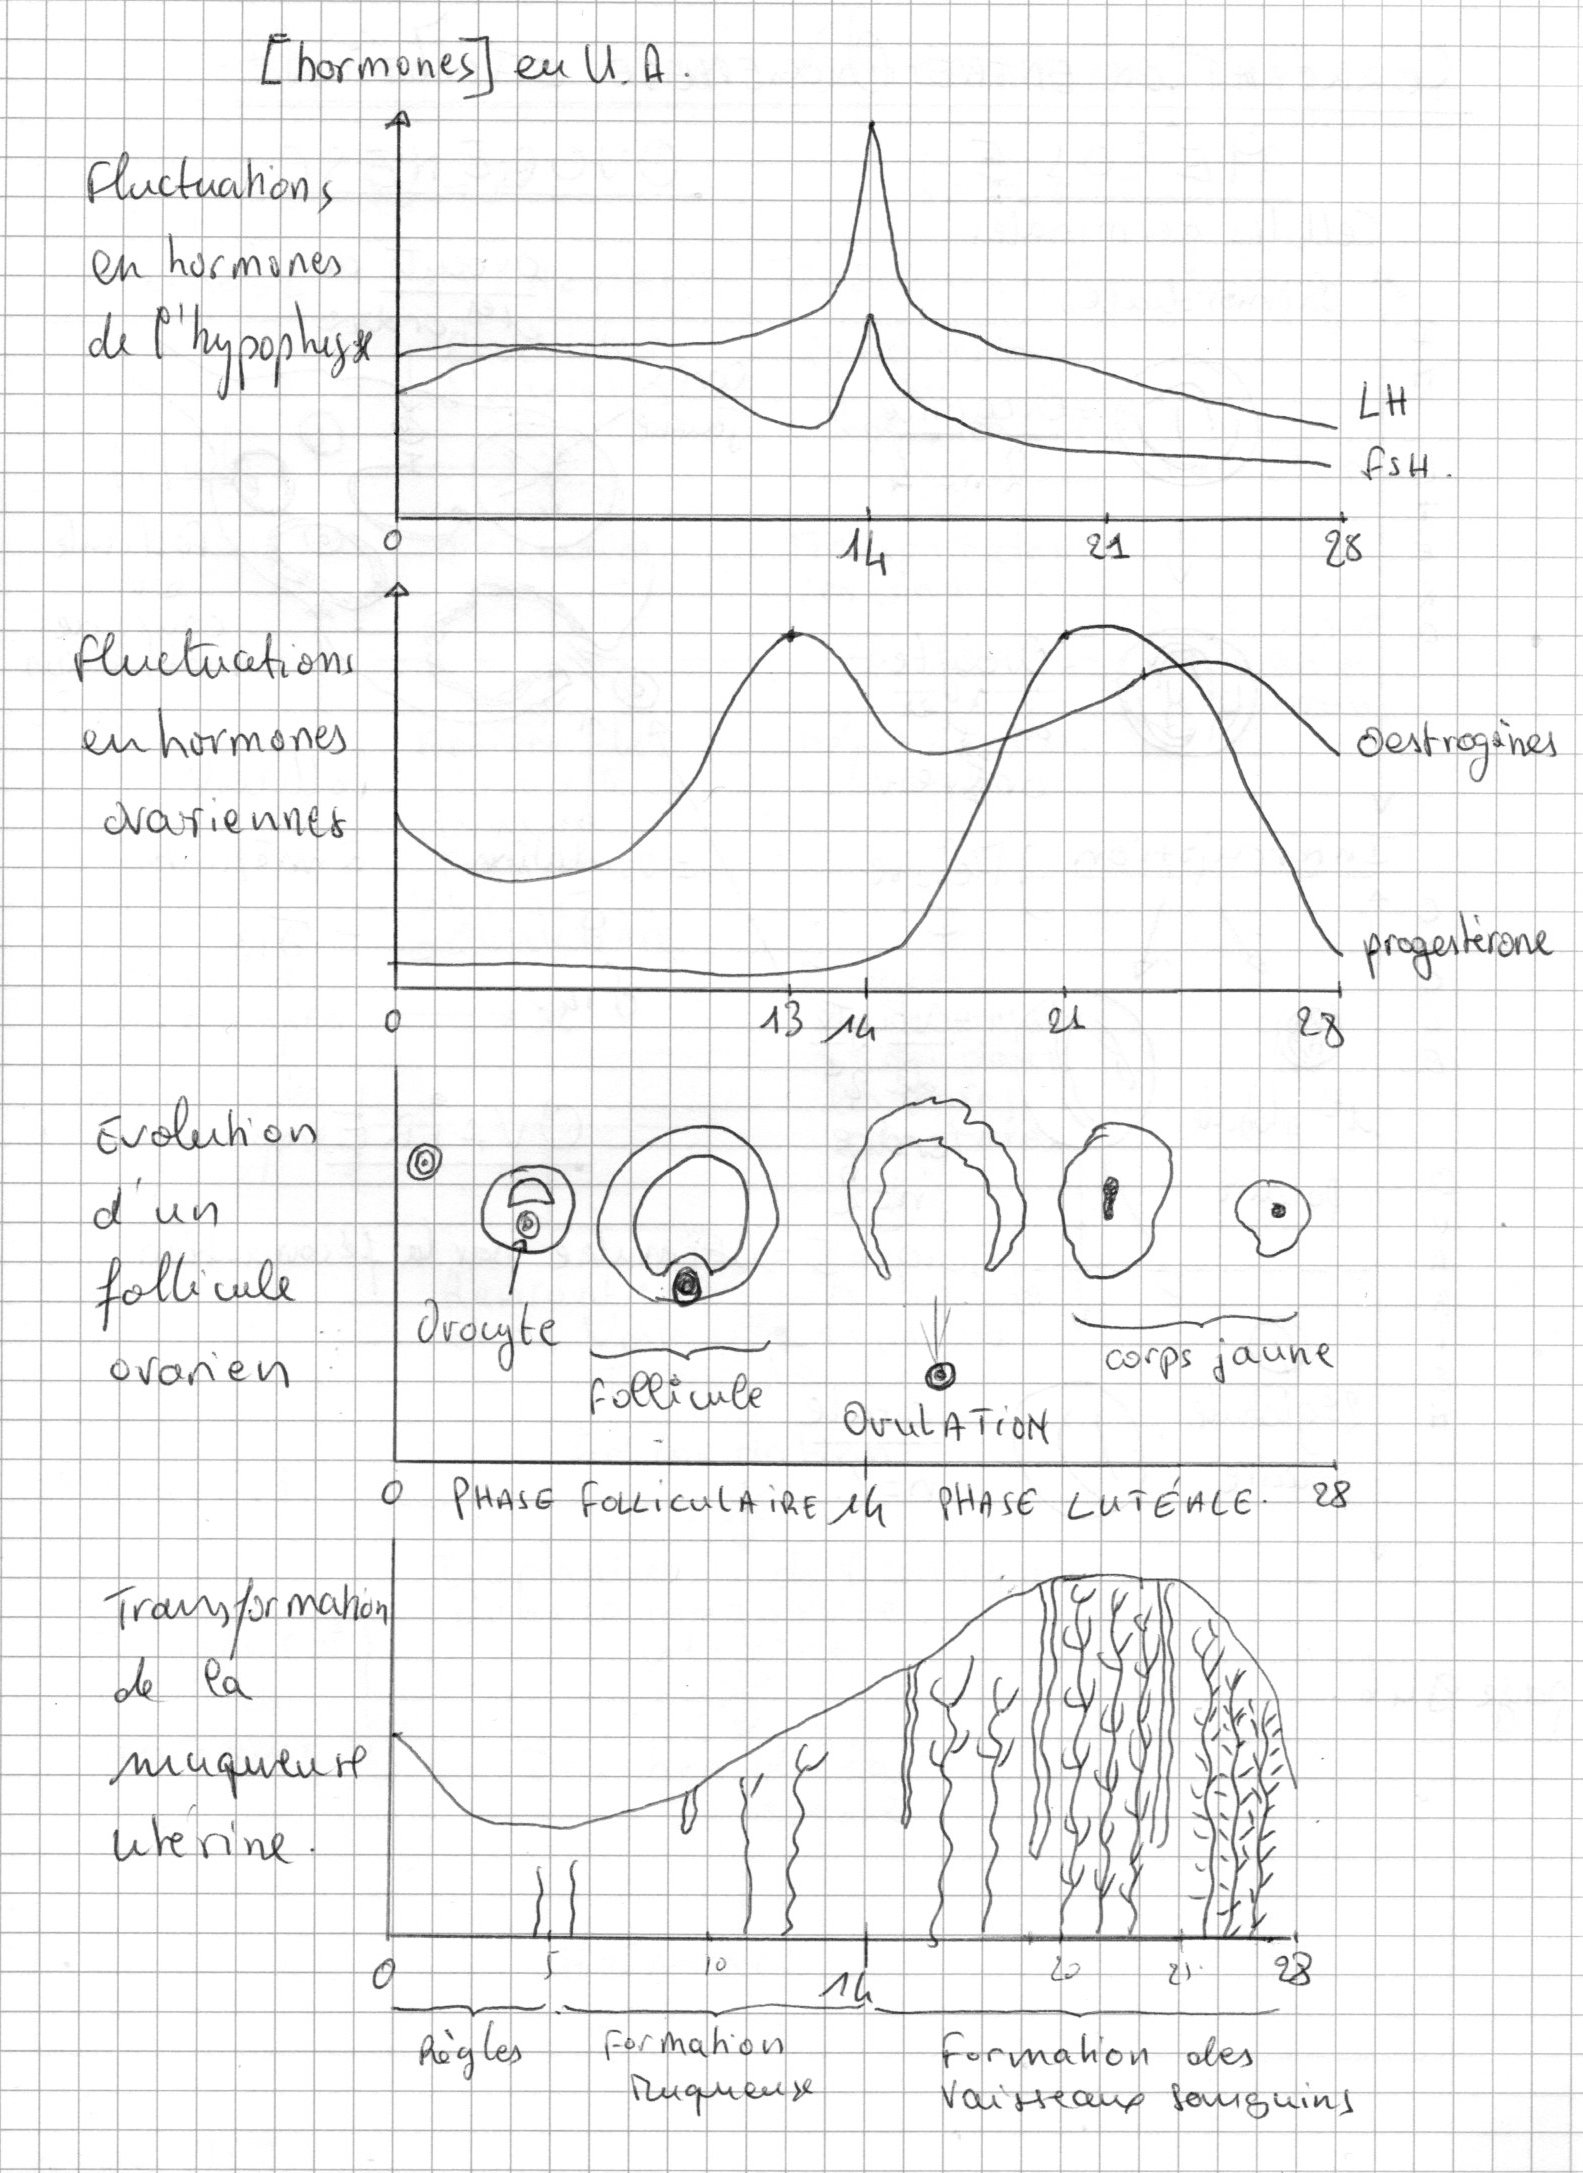 [hormones] en U.A.
Fluctuations
en hormones
de l'hypophyse
LH
FSH.
0 14 21 28
Fluctuations
en hormones
ovariennes
oestrogènes
progestérone
0 13 14 21 28
Evolution
d'un
follicule
ovarien
Ovocyte
follicule
OVULATION
corps jaune
0 PHASE FOLLICULAIRE 14 PHASE LUTÉALE. 28
Transformation
de la
muqueuse
utérine.
0 5 10 14 20 25 28
Règles
Formation
Muqueuse
Formation des
Vaisseaux sanguins